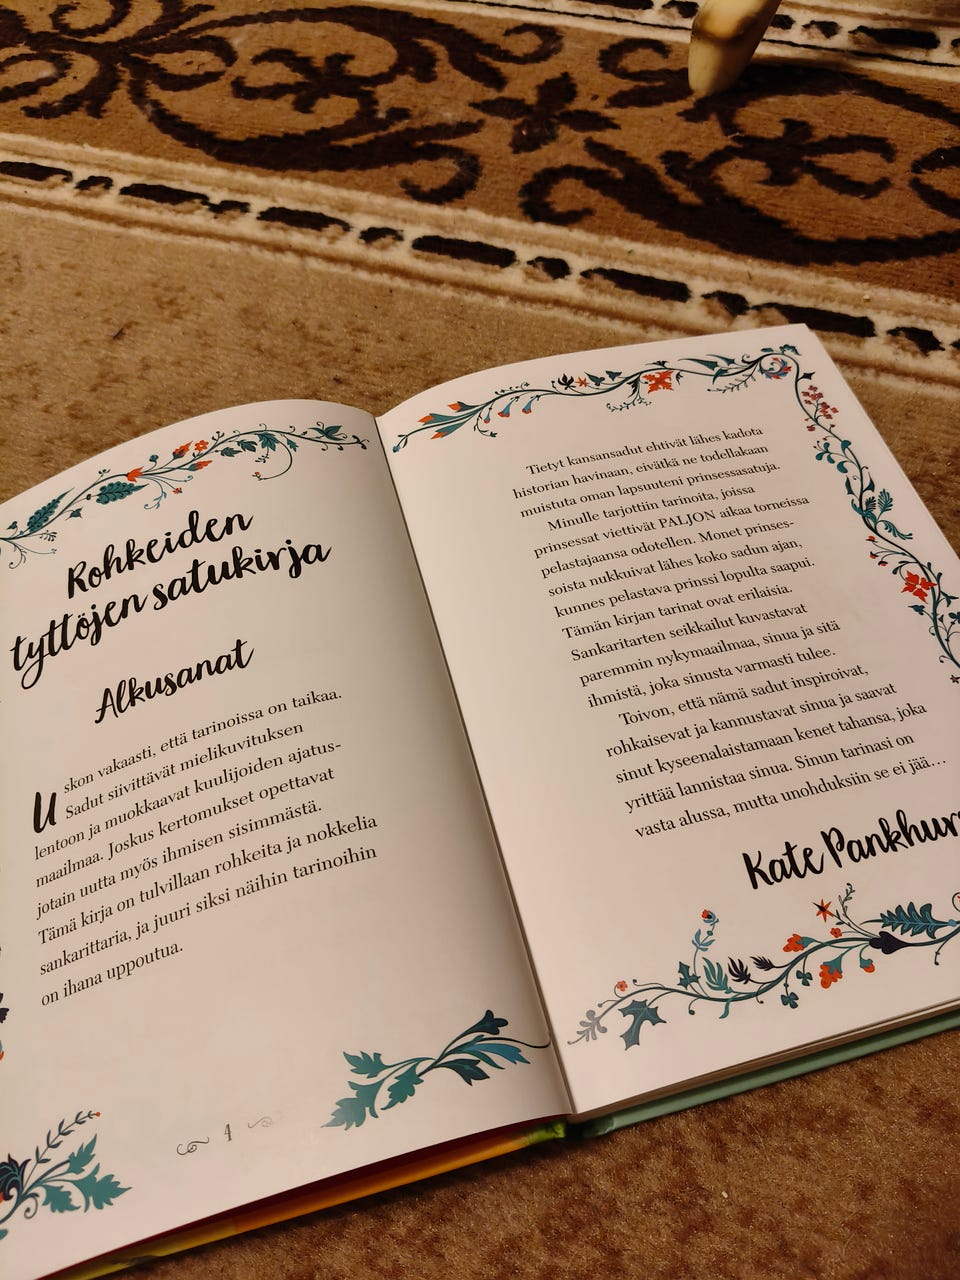 Rohkeiden
tyttöjen satukirja
Alkusanat
Uskon vakaasti, että tarinoissa on taikaa.
Sadut siivittävät mielikuvituksen
lentoon ja muokkaavat kuulijoiden ajatus-
maailmaa. Joskus kertomukset opettavat
jotain uutta myös ihmisen sisimmästä.
Tämä kirja on tulvillaan rohkeita ja nokkelia
sankarittaria, ja juuri siksi näihin tarinoihin
on ihana uppoutua.
4
Tietyt kansansadut ehtivät lähes kadota
historian havinaan, eivätkä ne todellakaan
muistuta oman lapsuuteni prinsessasatuja.
Minulle tarjottiin tarinoita, joissa
prinsessat viettivät PALJON aikaa torneissa
pelastajaansa odotellen. Monet prinses-
soista nukkuivat lähes koko sadun ajan,
kunnes pelastava prinssi lopulta saapui.
Tämän kirjan tarinat ovat erilaisia.
Sankaritarten seikkailut kuvastavat
paremmin nykymaailmaa, sinua ja sitä
ihmistä, joka sinusta varmasti tulee.
Toivon, että nämä sadut inspiroivat,
rohkaisevat ja kannustavat sinua ja saavat
sinut kyseenalaistamaan kenet tahansa, joka
yrittää lannistaa sinua. Sinun tarinasi on
vasta alussa, mutta unohduksiin se ei jää...
Kate Pankhurs